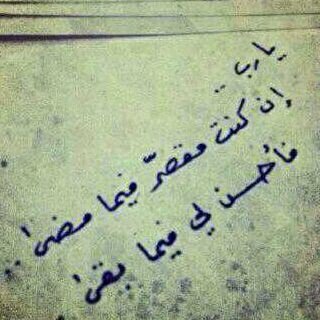 يا رب ..
إن كنت مقصرّ فيما مضى ،
فأحسن لي فيما بقى ،